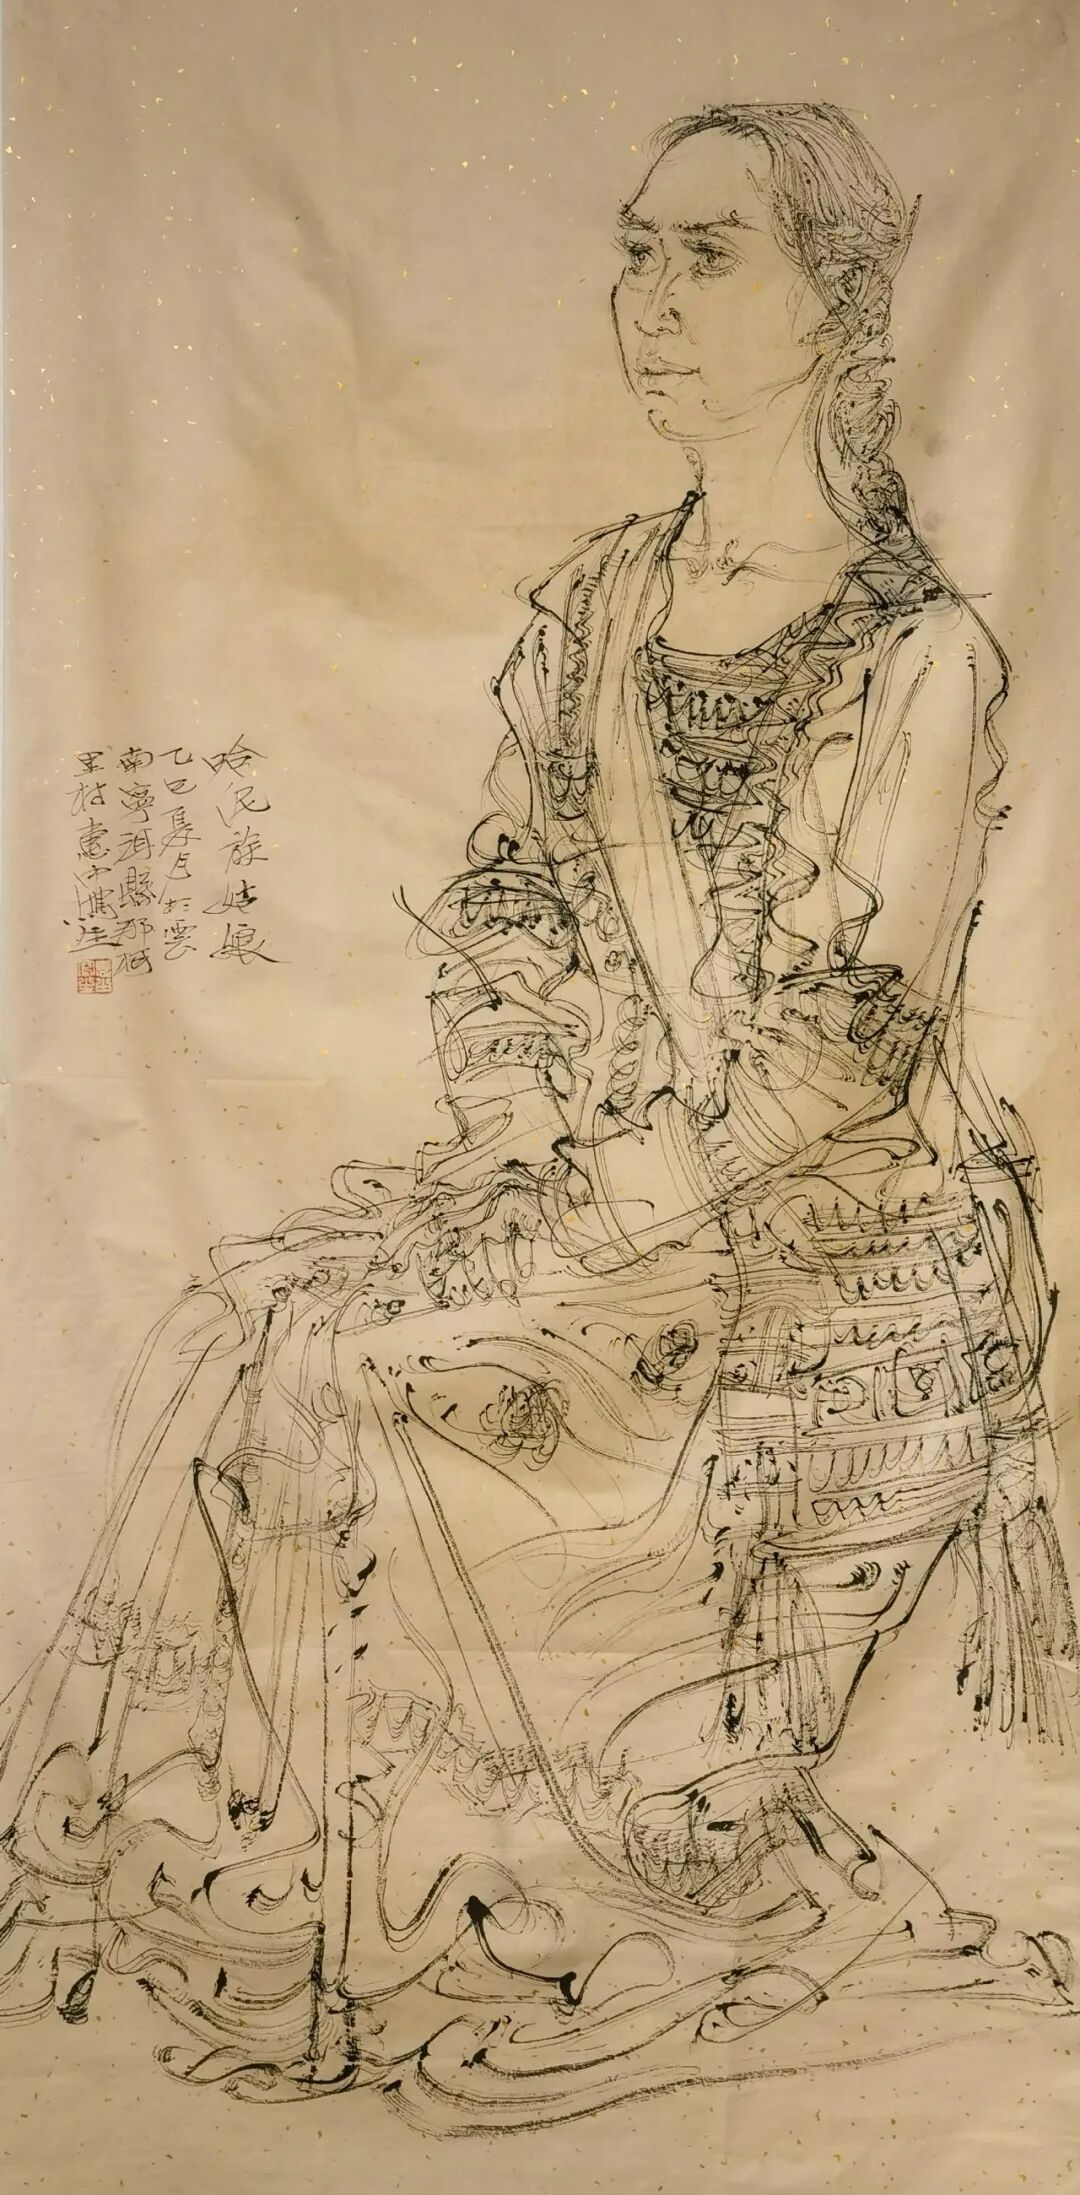 哈尼族姑娘
乙巳夏月於雲
南寧洱縣那柯
里村憲中寫生